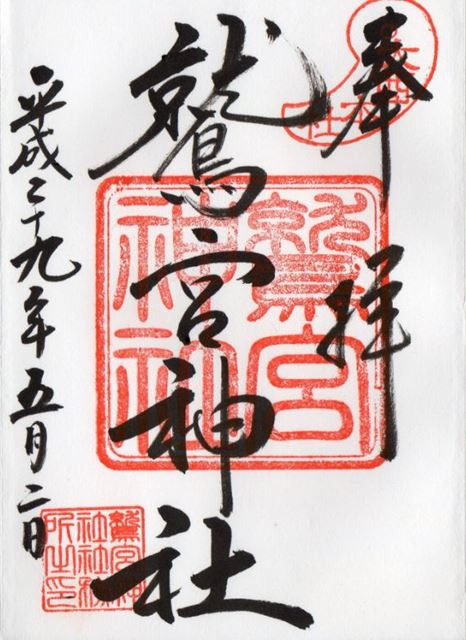 奉拝
鷲宮神社
平成二十九年五月二日
鷲宮神社
鷲宮神社社務所之印